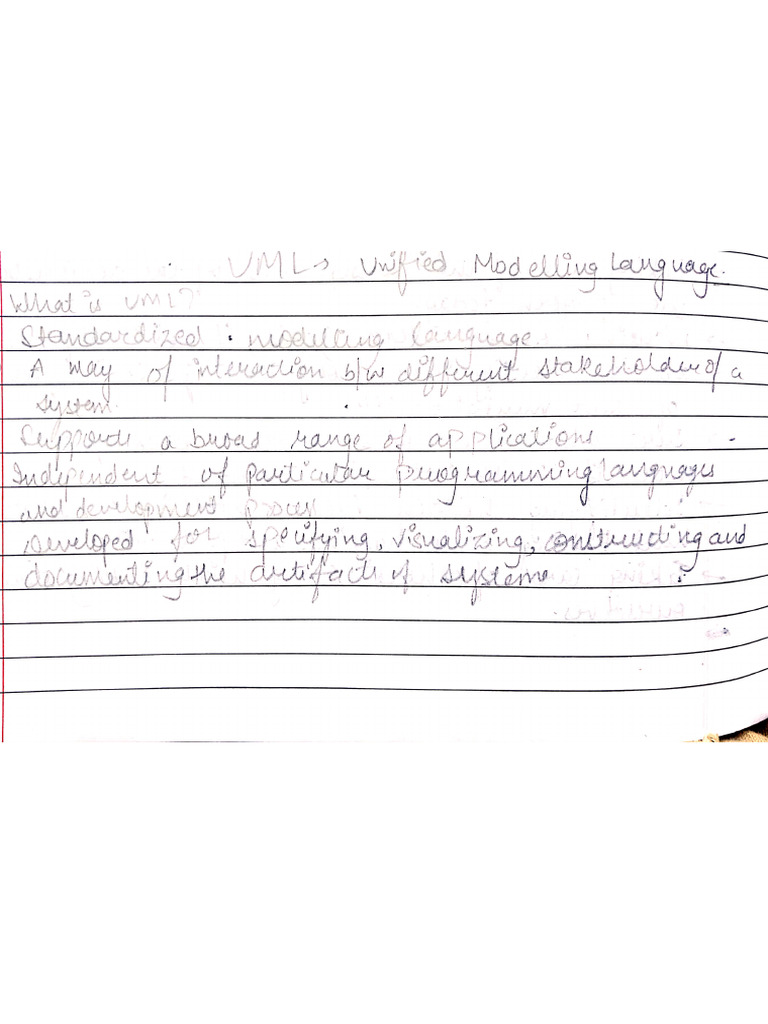 UML → Unified Modelling Language.
What is UML?
Standardized modelling language
A way of interaction b/w different stakeholder of a
system
Supports a broad range of applications
Independent of particular programming languages
and development process
Developed for specifying, visualizing, constructing and
documenting the artifacts of systems